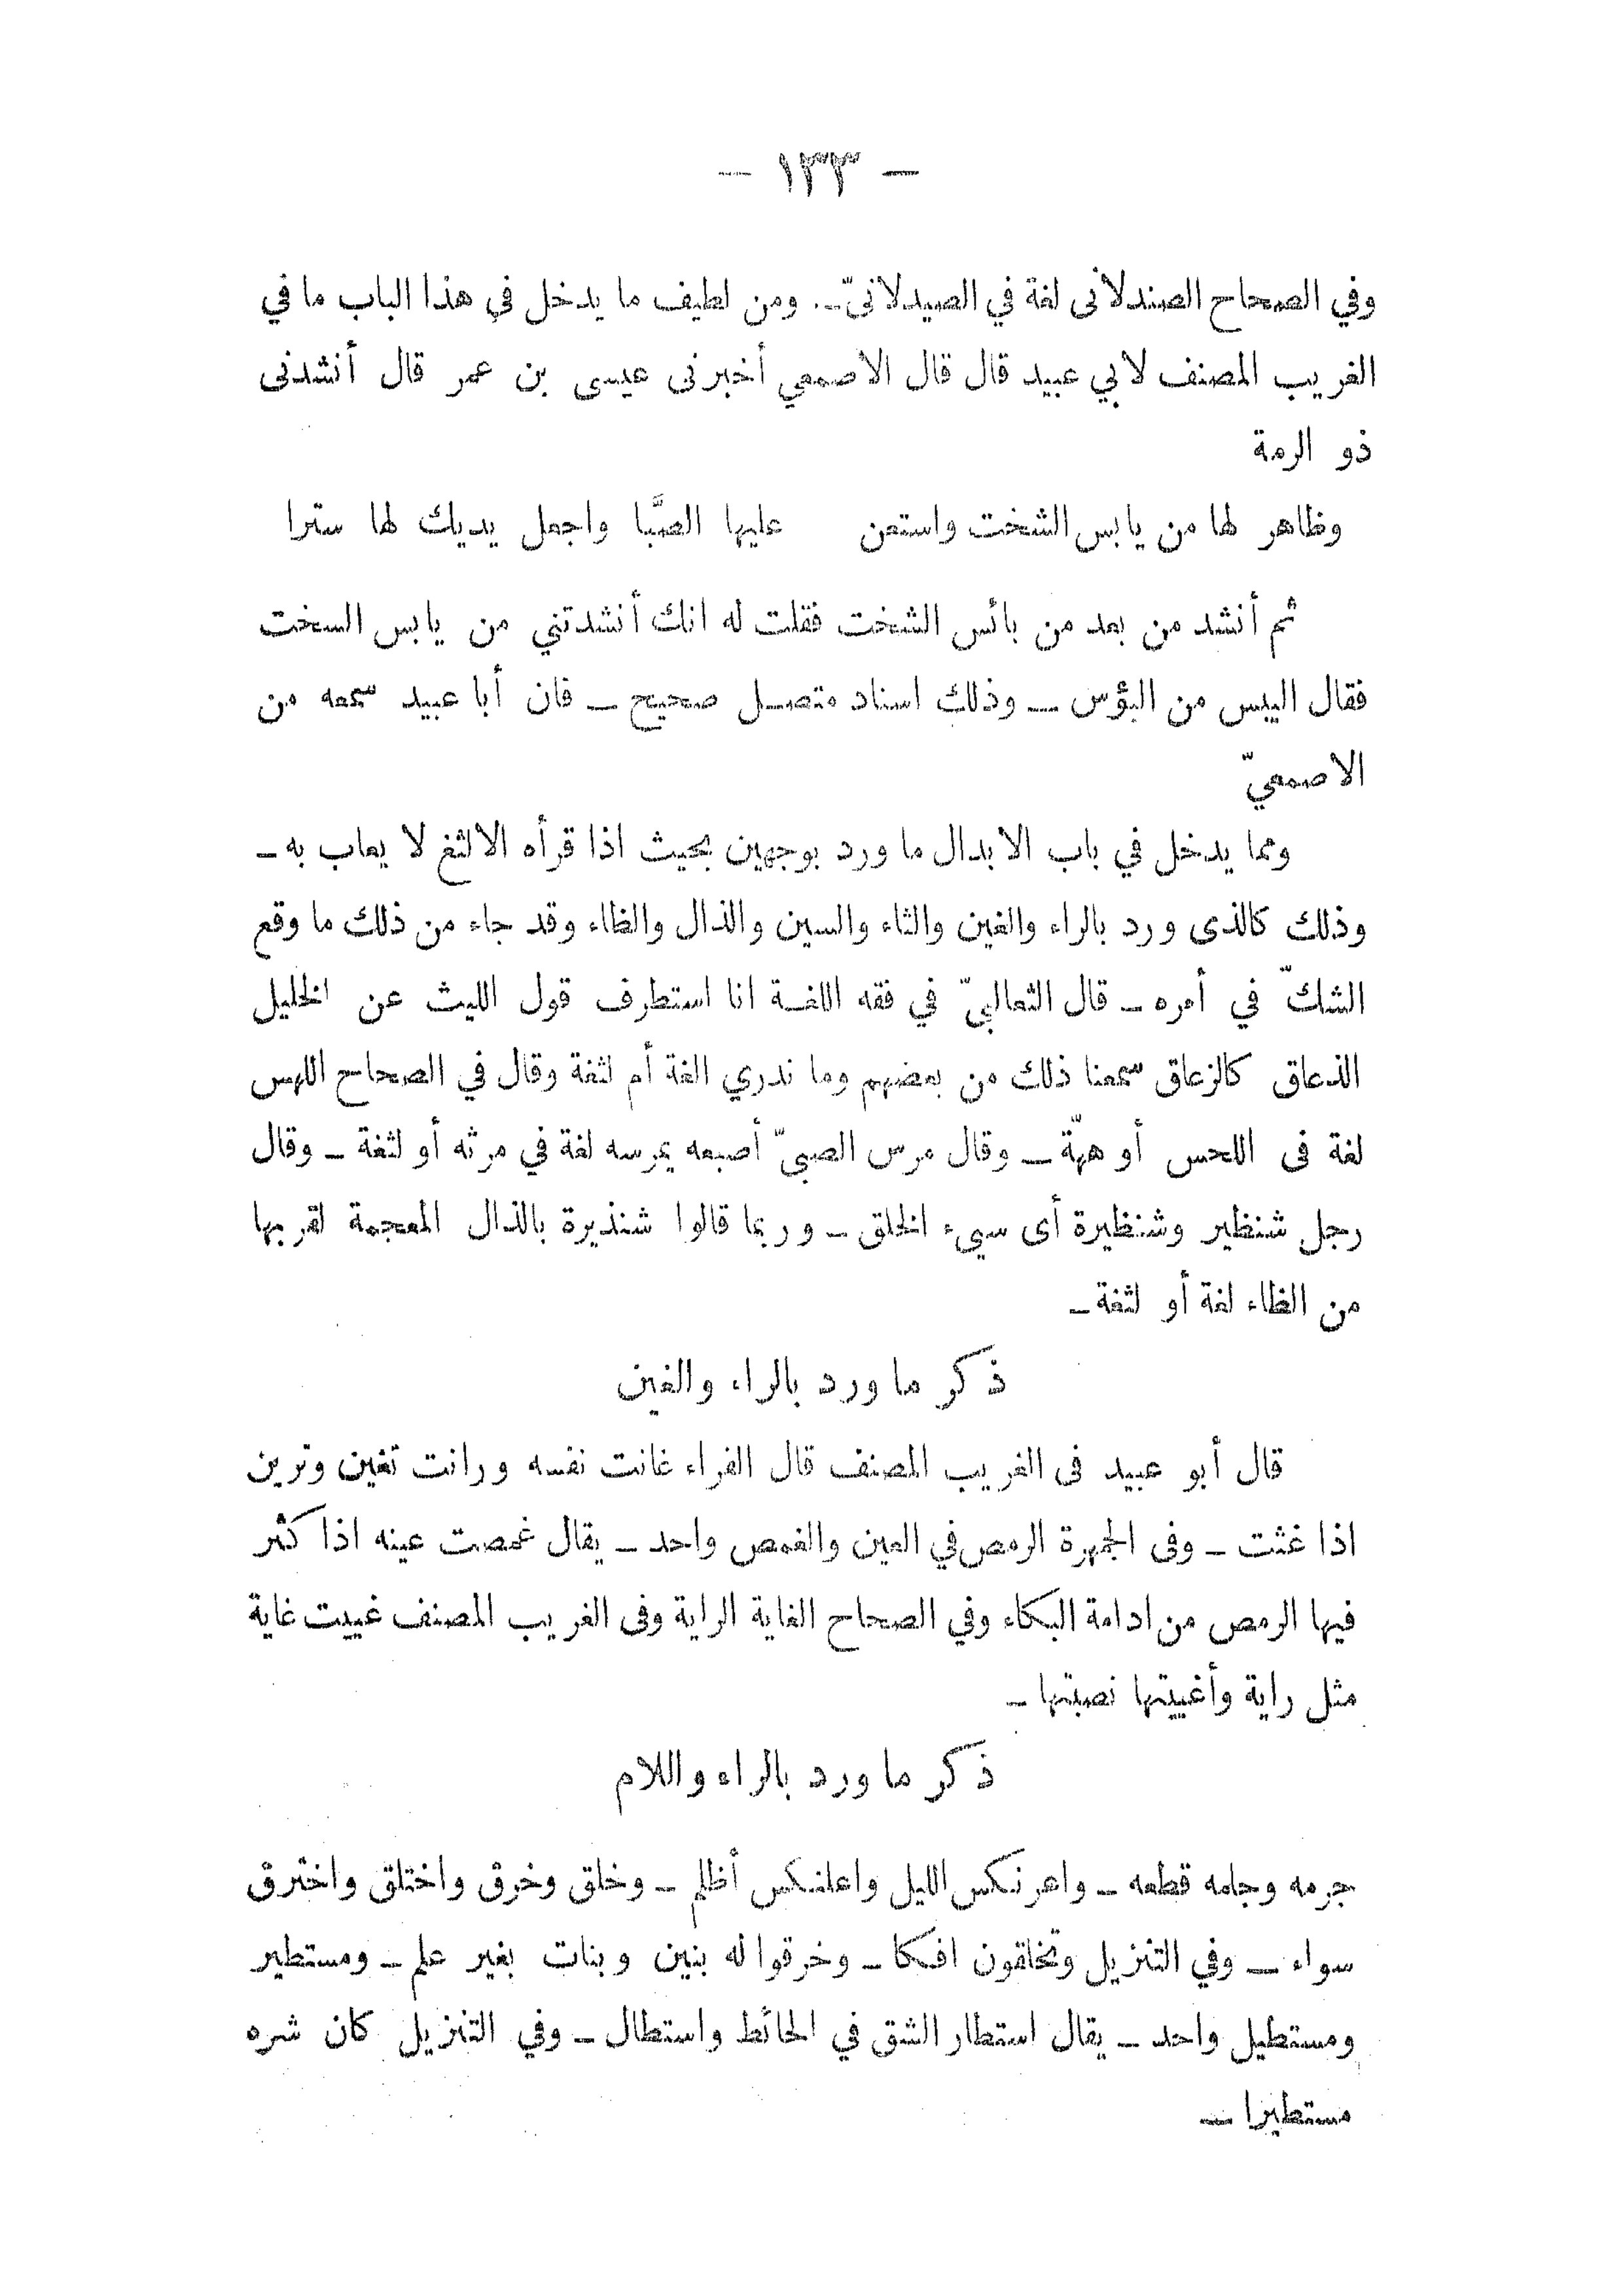 — ١٣٣ —
وفي الصحاح الصندلانى لغة في الصيدلانىّ ــ. ومن لطيف ما يدخل في هذا الباب ما في
الغريب المصنف لابي عبيد قال قال الاصمعي أخبرنى عيسى بن عمر قال أنشدنى
ذو الرمة
وظاهر لها من يابس الشخت واستعن عليها الصَّبا واجعل يديك لها سترا
ثم أنشد من بعد من بائس الشخت فقلت له انك أنشدتني من يابس السخت
فقال اليبس من البؤس ــ وذلك اسناد متصل صحيح ــ فان أبا عبيد سمعه من
الاصمعيّ
ومما يدخل في باب الابدال ما ورد بوجهين بحيث اذا قرأه الالثغ لا يعاب به ــ
وذلك كالذى ورد بالراء والغين والثاء والسين والذال والظاء وقد جاء من ذلك ما وقع
الشكّ في أمره ــ قال الثعالبيّ في فقه اللغة انا استطرف قول الليث عن الخليل
الذعاق كالزعاق سمعنا ذلك من بعضهم وما ندري الغة أم لثغة وقال في الصحاح اللهس
لغة فى اللحس أو ههّة ــ وقال مرس الصبيّ أصبعه يمرسه لغة في مرثه أو لثغة ــ وقال
رجل شنظير وشنظيرة أى سيىء الخلق ــ وربما قالوا شنذيرة بالذال المعجمة لقربها
من الظاء لغة أو لثغة ــ
ذكر ما ورد بالراء والغين
قال أبو عبيد فى الغريب المصنف قال الفراء غانت نفسه ورانت تغين وترين
اذا غثت ــ وفى الجمهرة الرمص في العين والغمص واحد ــ يقال غمصت عينه اذا كثر
فيها الرمص من ادامة البكاء وفي الصحاح الغاية الراية وفى الغريب المصنف غييت غاية
مثل راية وأغييتها نصبتها ــ
ذكر ما ورد بالراء واللام
جرمه وجلمه قطعه ــ واعرنكس الليل واعلنكس أظلم ــ وخلق وخرق واختلق واخترق
سواء ــ وفي التنزيل وتخلقون افكا ــ وخرقوا له بنين وبنات بغير علم ــ ومستطير
ومستطيل واحد ــ يقال استطار الشق في الحائط واستطال ــ وفي التنزيل كان شره
مستطيرا ــ